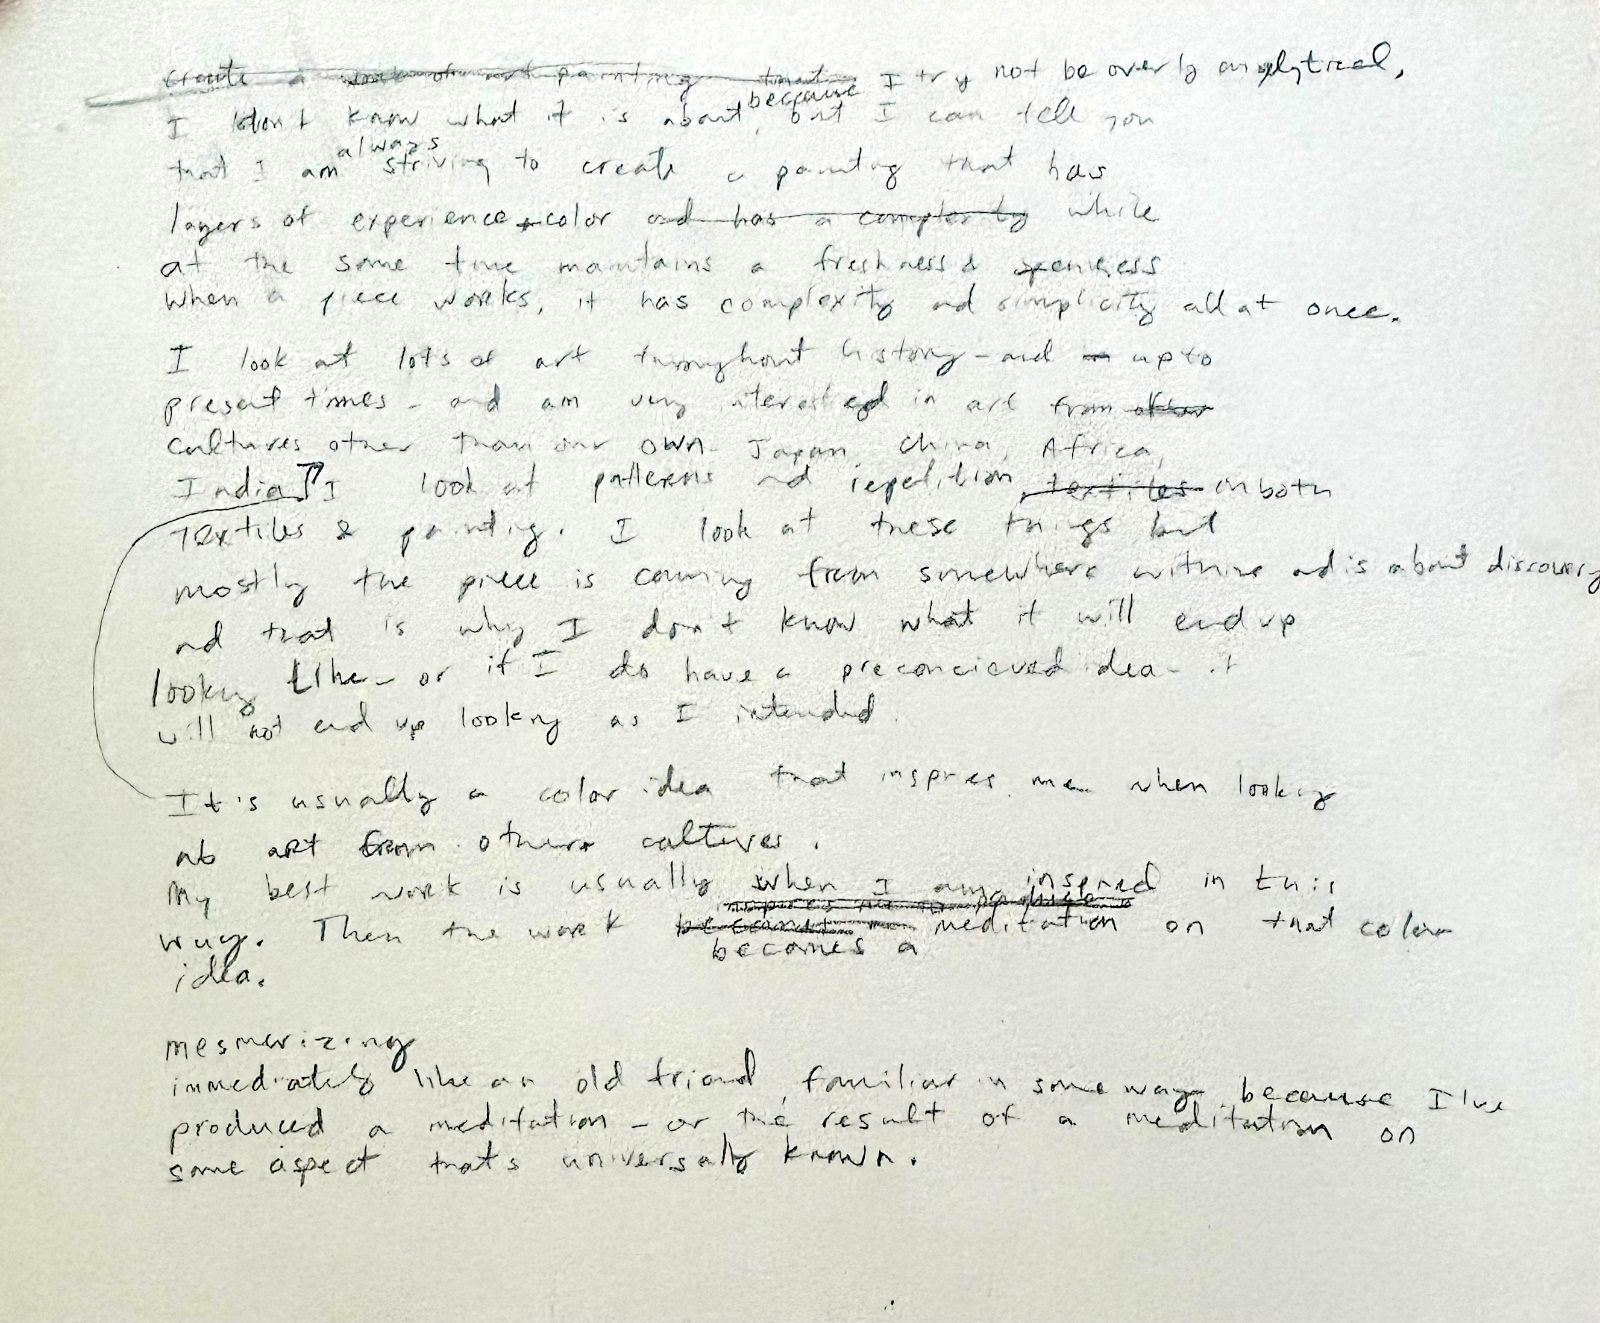 create a work of art painting that I try not be overly analytical,
I don't know what it is about because, but I can tell you
that I am always striving to create a painting that has
layers of experience + color and has a complexity while
at the same time maintains a freshness & openness
when a piece works, it has complexity and simplicity all at once.
I look at lots of art throughout history - and up to
present times - and am very interested in art from other
cultures other than our own - Japan, China, Africa,
India] I look at patterns and repetition, textiles in both
textiles & painting. I look at these things but
mostly the piece is coming from somewhere within and is about discovery
and that is why I don't know what it will end up
looking like - or if I do have a preconcieved idea - it
will not end up looking as I intended.
It's usually a color idea that inspires me when looking
at art from others cultures.
My best work is usually when I am inspired in this
way. Then the work becomes a meditation on that color
idea.
mesmerizing
immediately like an old friend, familiar in some way because I've
produced a meditation - or the result of a meditation on
some aspect that's universally known.